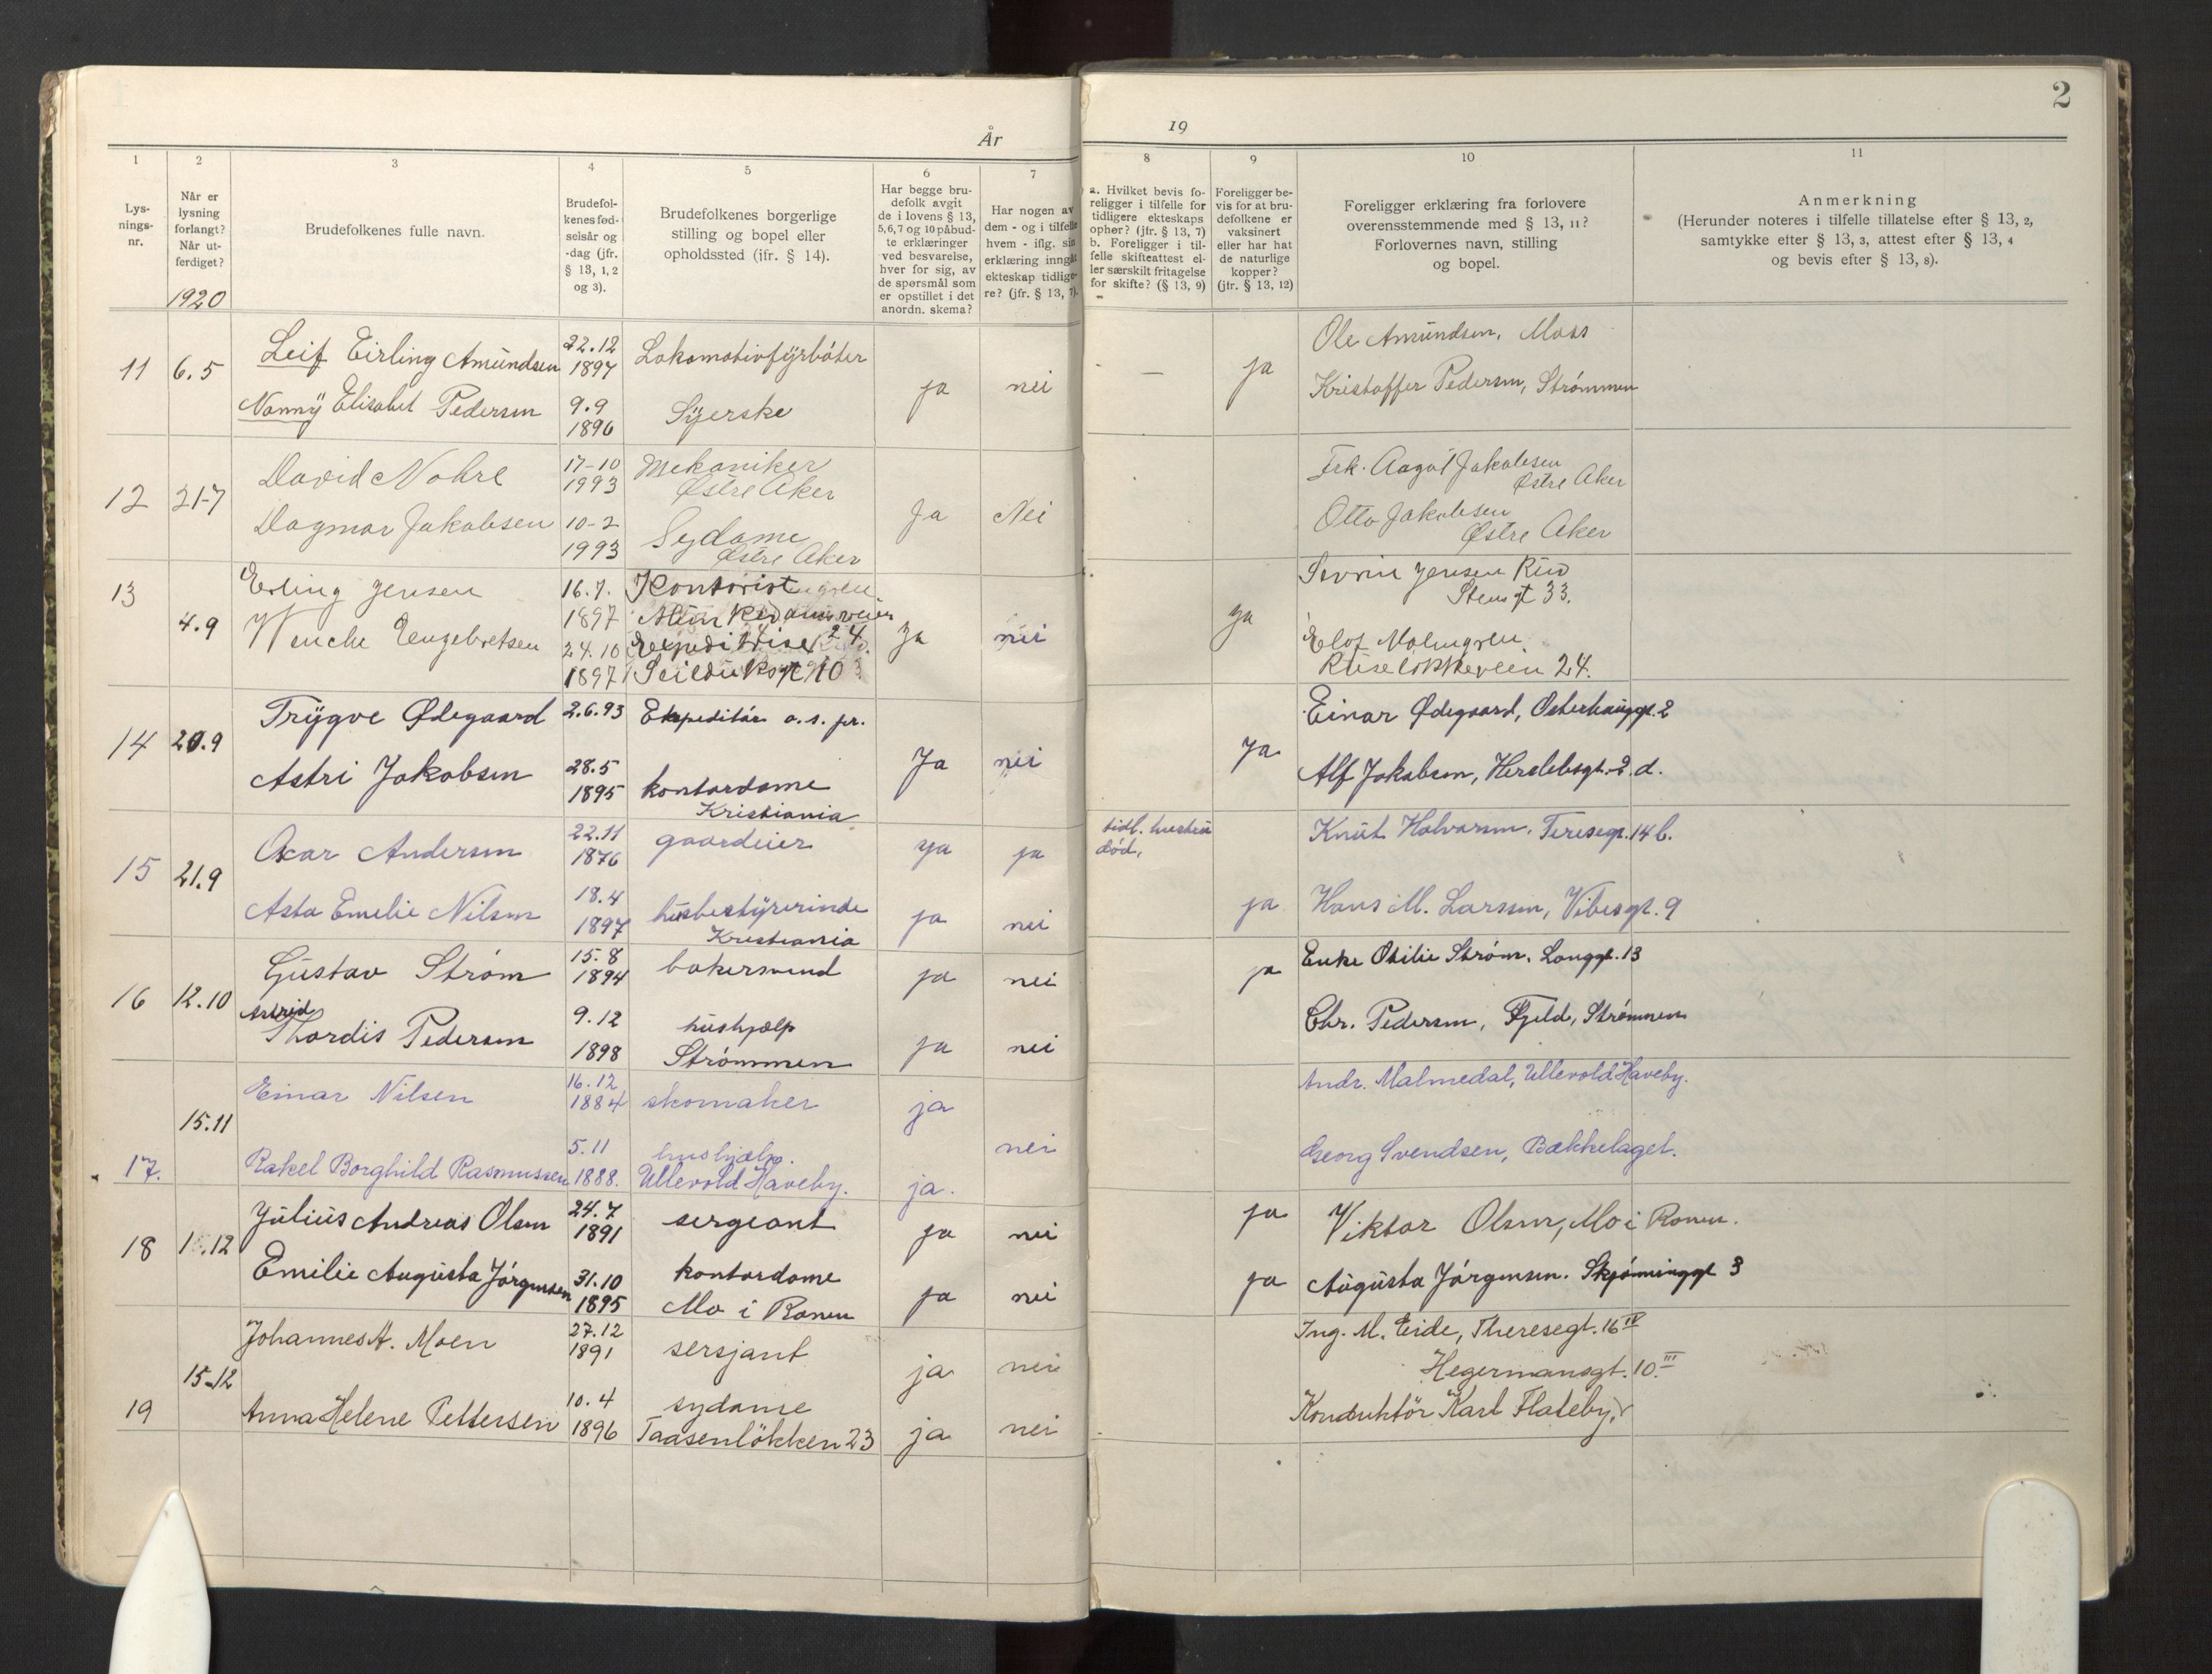 År
19
2
1
2
3
4
5
6
7
8
9
10
11
Lys-
nings-
nr.
Når er
lysning
forlangt?
Når ut-
ferdiget?
1920
Brudefolkenes fulle navn.
Brudefol-
kenes fød-
selsår og
-dag (jfr.
§ 13, 1, 2
og 3).
Brudefolkenes borgerlige
stilling og bopel eller
opholdssted (jfr. § 14).
Har begge bru-
defolk avgit
de i lovens § 13,
5, 6, 7 og 10 påbud-
te erklæringer
ved besvarelse,
hver for sig, av
de spørsmål som
er opstillet i det
anordn. skema?
Har nogen av
dem - og i tilfelle
hvem - iflg. sin
erklæring inngåt
ekteskap tidlige-
re? (jfr. § 13, 7).
a. Hvilket bevis fo-
religger i tilfelle for
tidligere ekteskaps
ophør? (jfr. § 13, 7)
b. Foreligger i til-
felle skifteattest el-
ler særskilt fritagelse
for skifte? (§ 13, 9)
Foreligger be-
vis for at bru-
defolkene er
vaksinert
eller har hat
de naturlige
kopper?
(jfr. § 13, 12)
Foreligger erklæring fra forlovere
overensstemmende med § 13, 11?
Forlovernes navn, stilling
og bopel.
Anmerkning
(Herunder noteres i tilfelle tillatelse efter § 13, 2,
samtykke efter § 13, 3, attest efter § 13, 4
og bevis efter § 13, 8).
11 6.5 Leif Eirling Amundsen 22.12 1897 Lokomotivfyrbøter ja nei — ja Ole Amundsen, Moss
Nanny Elisabet Pedersen 9.9 1896 Syerske Kristoffer Pedersen, Strømmen
12 21-7 David Nohre 17-10 1993 Mekaniker Østre Aker Ja Nei Frk. Aagot Jakobsen Østre Aker
Dagmar Jakobsen 10-2 1993 Sydame Østre Aker Otto Jakobsen Østre Aker
13 4.9 Erling Jensen 16.7. 1897 Kontorist Ja nei ja Jensen Stensgt 33.
Wenche Engebretsen 24.10 1897 24. Seilduksgt 10 Elof Malmgren Ruseløkkeveien 24.
14 20.9 Trygve Ødegaard 2.6.93 Ekspeditør o. s. pr. Ja nei Ja Einar Ødegaard, Osterhausgt. 2
Astri Jakobsen 28.5 1895 kontordame Kristiania Alf Jakobsen, Herslebsgt. 2 d.
15 21.9 Oscar Andersen 22.11 1876 gaardeier ja ja tidl. hustru død, Knut Halvorsen, Teresegt. 14 b.
Asta Emelie Nilsen 18.4 1897 husbestyrerinde Kristiania ja nei ja Hans M. Larssen, Vibesgt. 9
16 12.10 Gustav Strøm 15.8 1894 bakersvend ja nei ja Enke Otilie Strøm, Langgt. 13
Astrid
Thordis Pedersen 9.12 1898 hushjælp Strømmen ja nei Chr. Pedersen, Fjeld, Strømmen
17. 15.11 Einar Nilsen 16.12 1884 skomaker ja nei Andr. Malmedal, Ullevold Haveby.
Rakel Borghild Rasmussen 5.11 1888. hushjælp. Ullevold Haveby. ja. Georg Svendsen, Bækkelaget.
18 Julius Andreas Olsen 24.7 1891 sergeant ja nei ja Viktor Olsen, Mo i Ranen.
Emilie Augusta Jørgensen 31.10 1895 kontordame Mo i Ranen ja nei ja Augusta Jørgensen. Skjønninggt 3
19 15-12 Johannes A. Moen 27.12 1891 sersjant ja nei Ing. M. Eide, Theresegt. 16 IV
Hegermansgt. 10. III
Anna Helene Pettersen 10.4 1896 sydame Taasenløkken 23 ja nei Konduktör Karl Flateby,